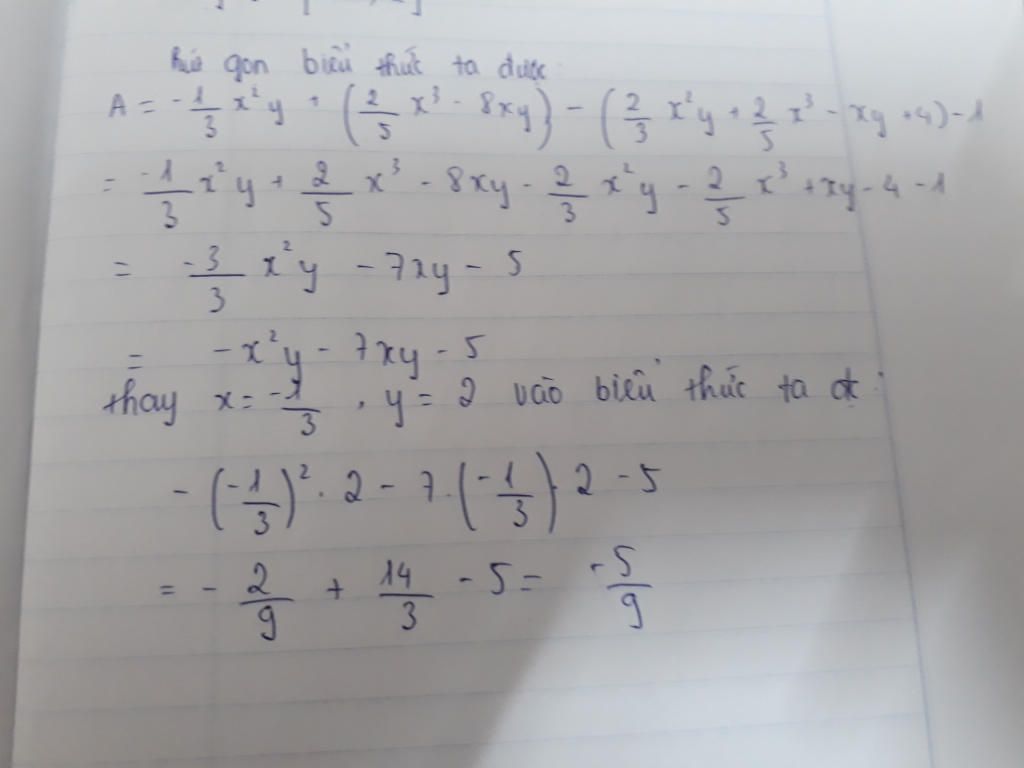 gọn biểu thức ta được
A = -1/3 x²y + (2/5 x³ - 8xy) - (2/3 x²y + 2/5 x³ - xy + 4) - 1
= -1/3 x²y + 2/5 x³ - 8xy - 2/3 x²y - 2/5 x³ + xy - 4 - 1
= -3/3 x²y - 7xy - 5
= -x²y - 7xy - 5
thay x = -1/3 , y = 2 vào biểu thức ta đc :
- (-1/3)² . 2 - 7 . (-1/3) 2 - 5
= - 2/9 + 14/3 - 5 = -5/9